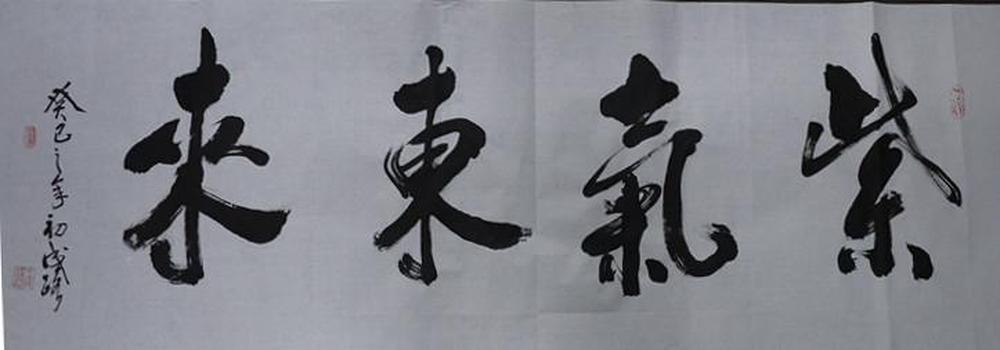 紫氣東來
癸巳之年初